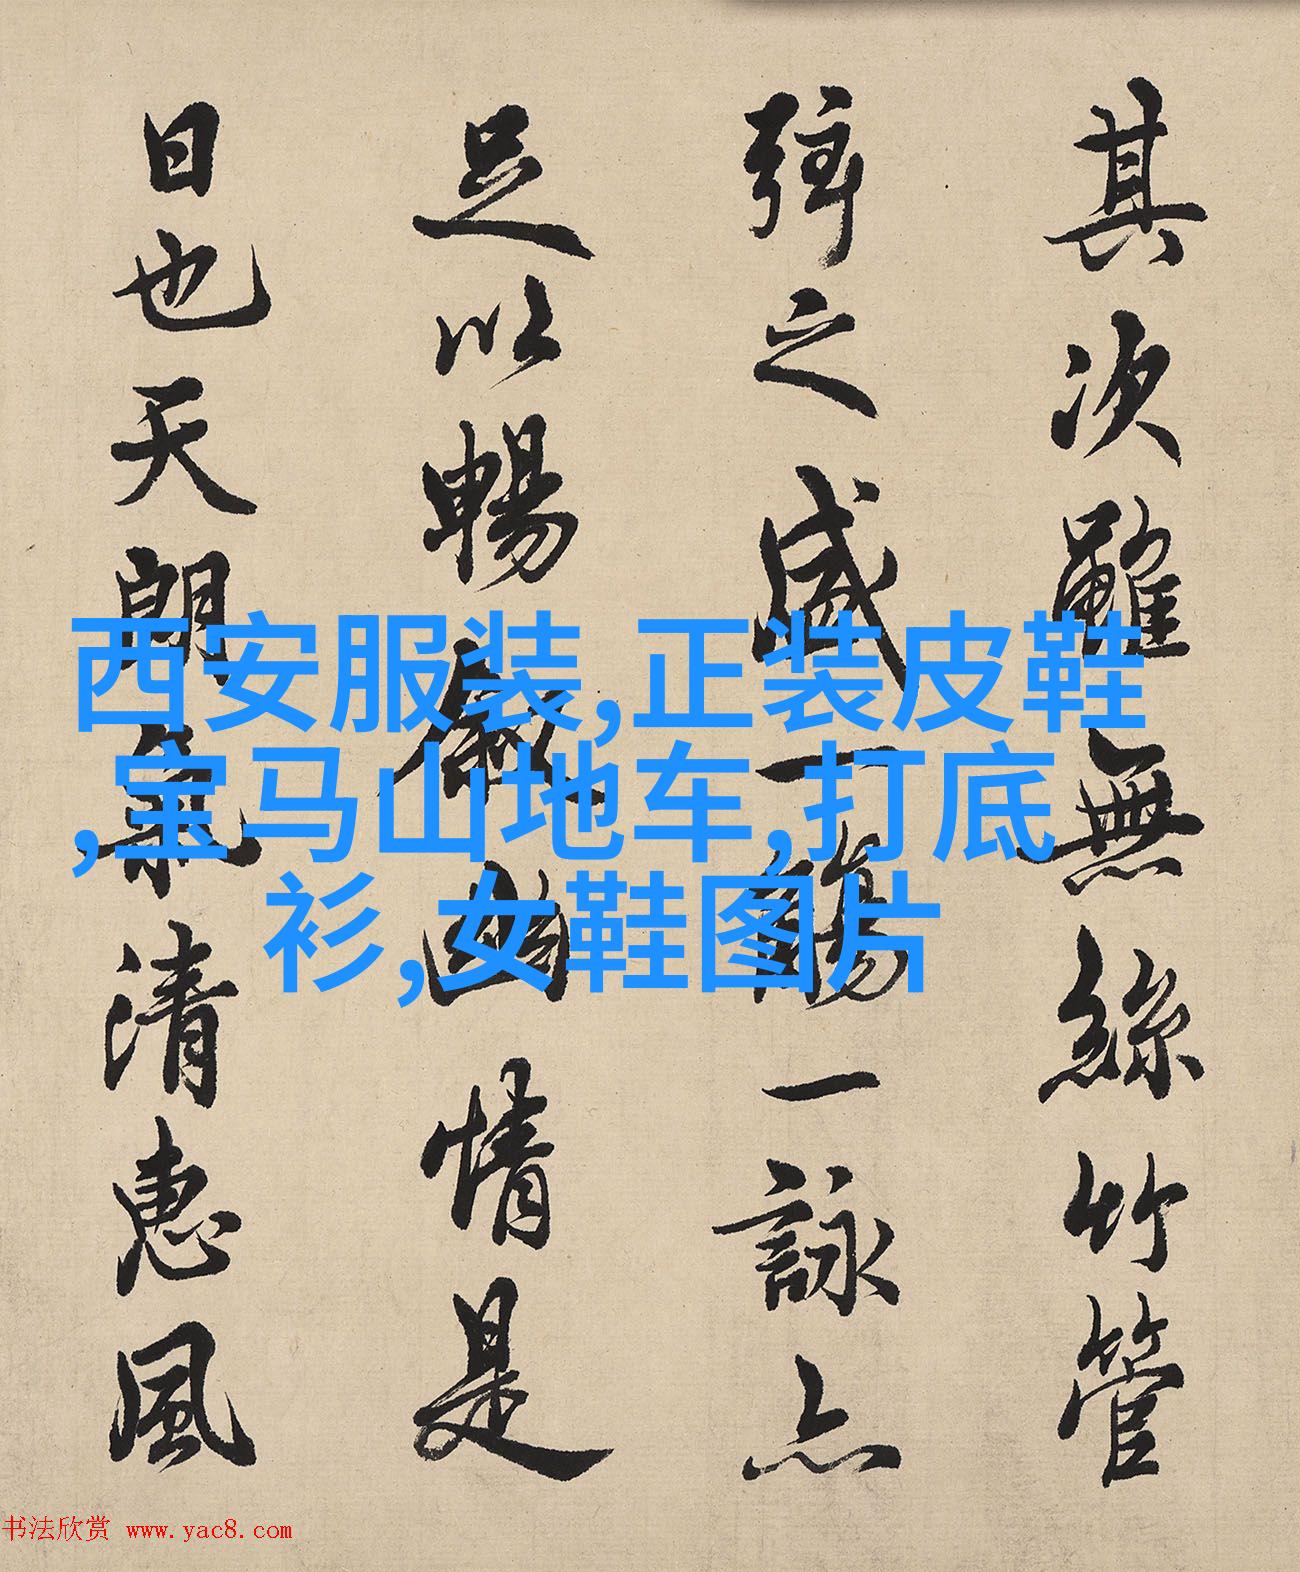 其次雖無絲竹管
弦之盛一觴一詠亦
足以暢敘幽情是
日也天朗氣清惠風
西安服装,正装皮鞋
,宝马山地车,打底
衫,女鞋图片
书法欣赏 www.yac8.com